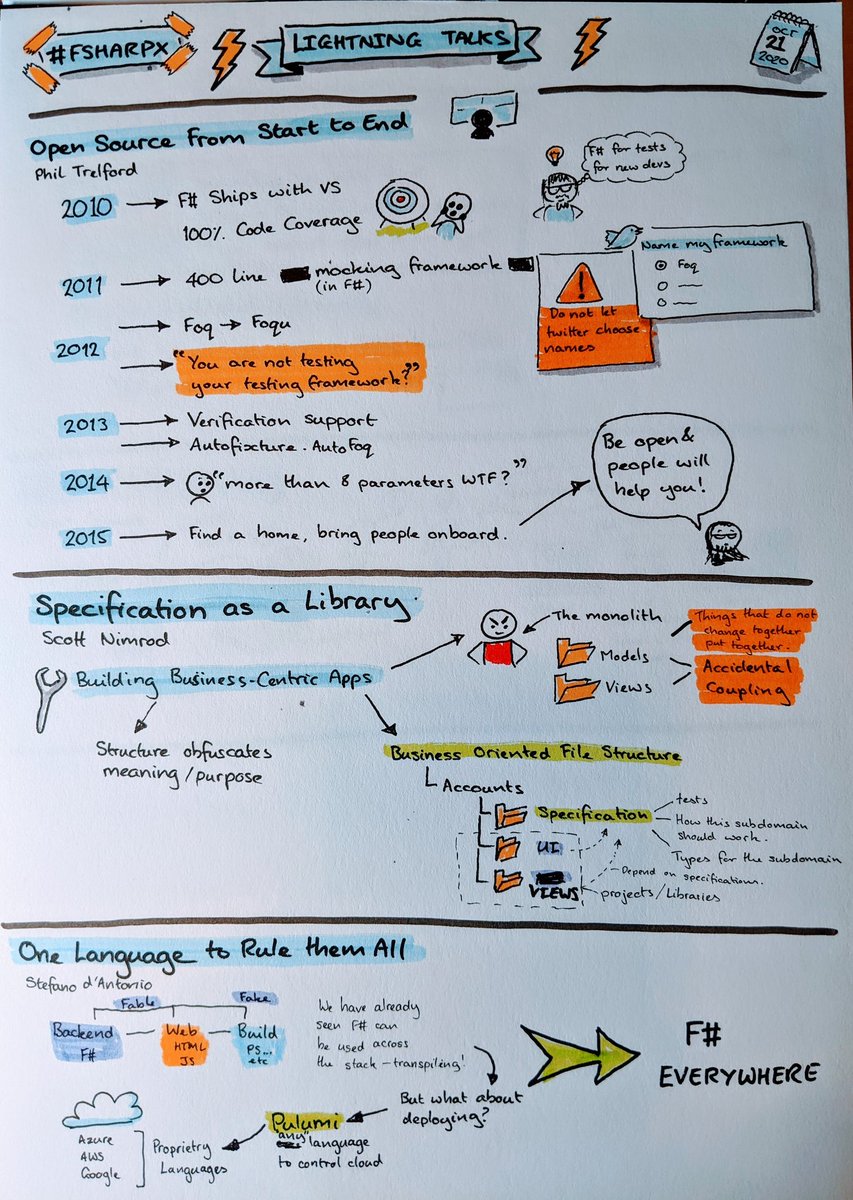 #FSHARPX
LIGHTNING TALKS
OCT
21
2020
Open Source From Start to End
Phil Trelford
F# for tests
for new devs
2010 → F# Ships with VS
100% Code Coverage
2011 → 400 line mocking framework
(in F#)
Name my framework
Foq
Do not let
twitter choose
names
2012
→ Foq → Foqu
→ "You are not testing
your testing framework?"
2013 → Verification support
→ Autofixture. AutoFoq
2014 → "more than 8 parameters WTF?"
2015 → Find a home, bring people onboard.
Be open &
people will
help you!
Specification as a Library
Scott Nimrod
Building Business-Centric Apps
The monolith
Models
Views
Things that do not
change together
put together.
Accidental
Coupling
Structure obfuscates
meaning/purpose
Business Oriented File Structure
Accounts
Specification
tests
How this subdomain
should work.
Types for the subdomain
UI
Depend on specifications.
VIEWS
projects/Libraries
One Language to Rule them All
Stefano d'Antonio
Fable
Fake
Backend
F#
Web
HTML
JS
Build
PS...
etc
We have already
seen F# can
be used across
the stack - transpiling!
But what about
deploying?
Pulumi
"any" language
to control cloud
Propriety
Languages
Azure
AWS
Google
F#
EVERYWHERE